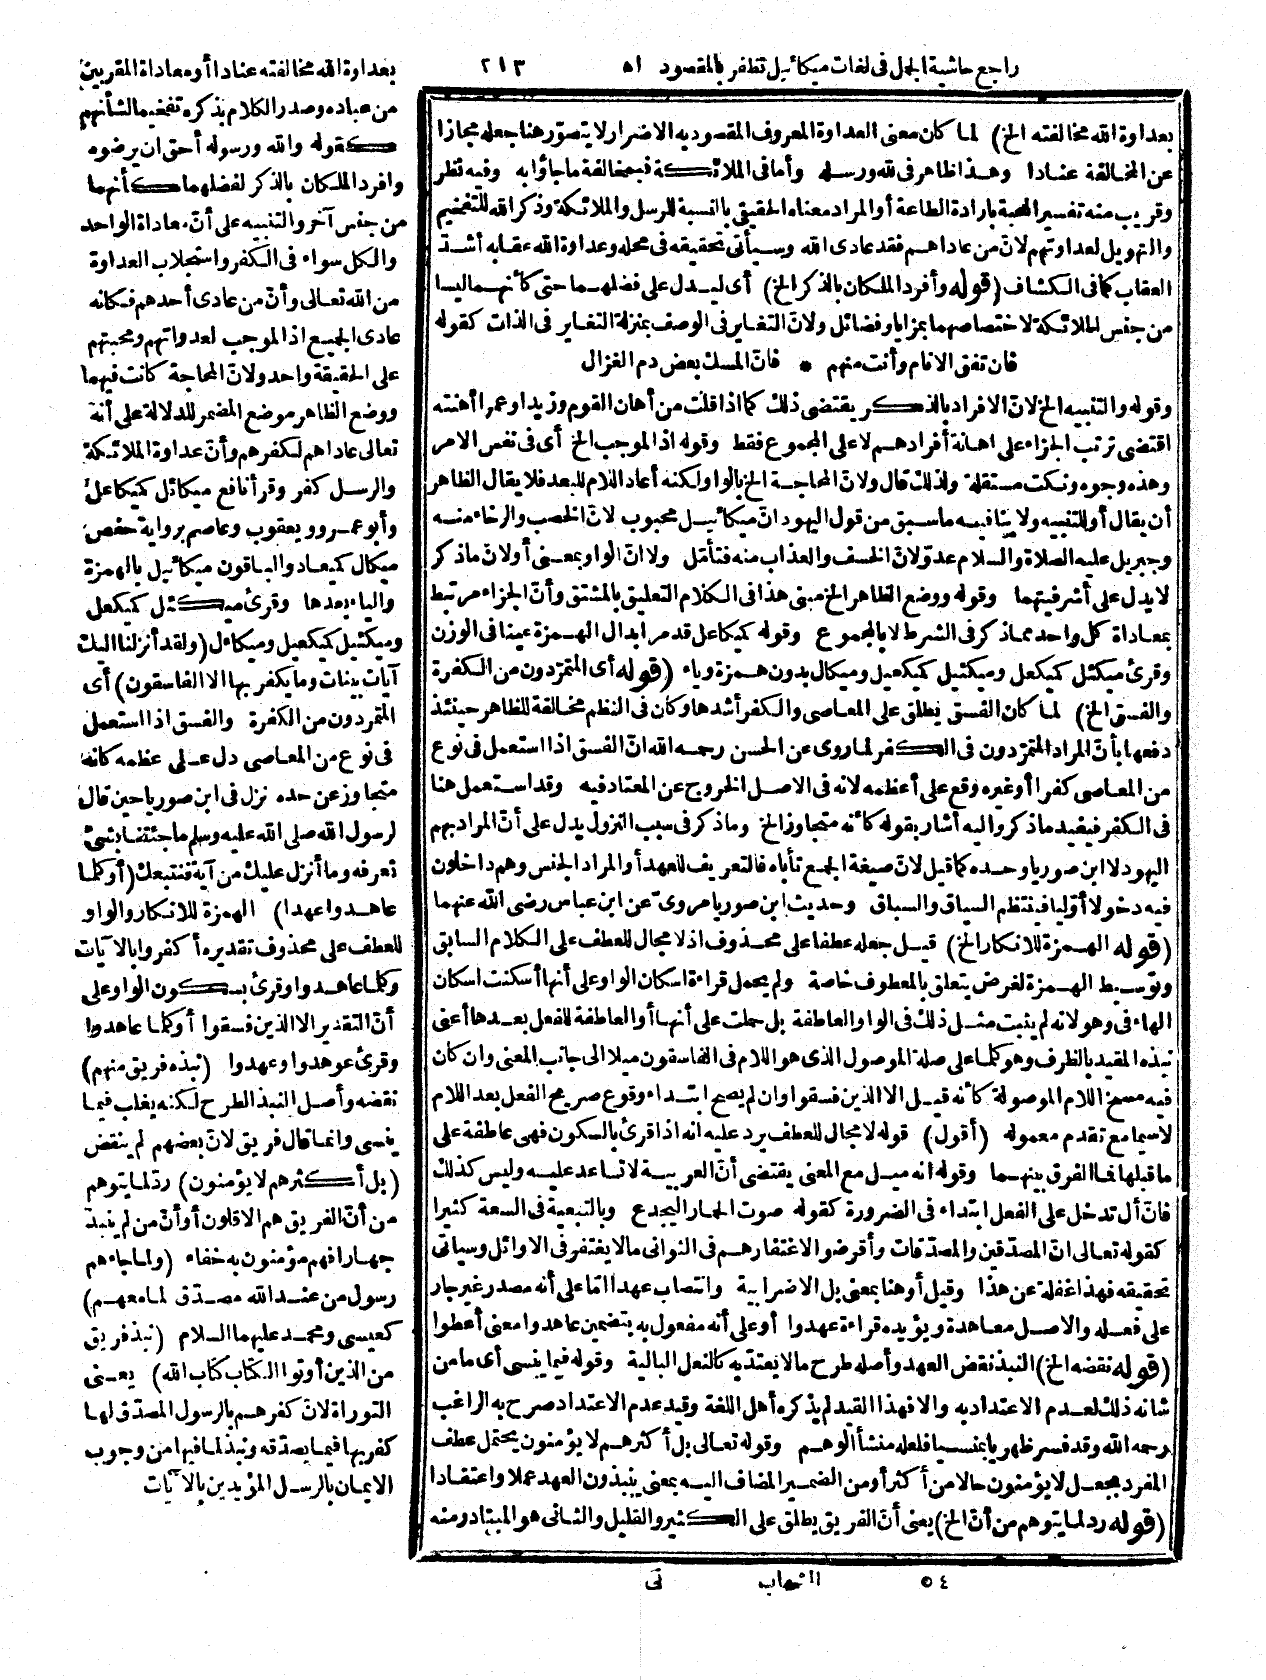 راجع حاشية الجمل فى لغات ميكائيل تظفر بالمقصود اه
٢١٣
بعداوة الله مخالفته الخ) لما كان معنى العداوة المعروف المقصود به الاضرار لا يتصوّر هنا جعله مجازا
عن المخالفة عنادا وهذا ظاهر فى لله ورسله وأما فى الملائكة فبمخالفة ما جاؤا به وفيه نظر
وقريب منه تفسير المحبة بارادة الطاعة أو المراد معناه الحقيقى بالنسبة للرسل والملائكة وذكر الله للتفخيم
والتهويل لعداوتهم لانّ من عاداهم فقد عادى الله وسيأتى تحقيقه فى محله وعداوة الله عقابه أشدّ
العقاب كما فى الكشاف (قوله وأفرد الملكان بالذكر الخ) أى ليدل على فضلهما حتى كأنهما ليسا
من جنس الملائكة لاختصاصهما بمزايا وفضائل ولانّ التغاير فى الوصف بمنزلة التغاير فى الذات كقوله
فان تفق الانام وأنت منهم * فانّ المسك بعض دم الغزال
وقوله والتنبيه الخ لانّ الافراد بالذكر يقتضى ذلك كما اذا قلت من أهان القوم وزيدا وعمرا أهنته
اقتضى ترتب الجزاء على اهانة أفرادهم لا على المجموع فقط وقوله اذ الموجب الخ أى فى نفس الامر
وهذه وجوه ونكت مستقلة ولذلك قال ولانّ المحاجة الخ بالواو لكنه أعاد اللام للبعد فلا يقال الظاهر
أن يقال أو للتنبيه ولا ينافيه ما سبق من قول اليهود انّ ميكائيل محبوب لانّ الخصب والرخاء منه
وجبريل عليه الصلاة والسلام عدوّ لانّ الخسف والعذاب منه فتأمّل ولا انّ الواو بمعنى أو لانّ ما ذكر
لا يدل على أشرفيتهما وقوله ووضع الظاهر الخ مبنى هذا فى الكلام التعليق بالمشتق وأنّ الجزاء مرتبط
بمعاداة كل واحد مما ذكر فى الشرط لا بالمجموع وقوله كميكاعل قد مر ابدال الهمزة عينا فى الوزن
وقرئ ميكئل كميكعل وميكئيل كميكعيل وميكال بدون همزة وياء (قوله أى المتمرّدون من الكفرة
والفسق الخ) لما كان الفسق يطلق على المعاصى والكفر أشدها وكان فى النظم مخالفة للظاهر حينئذ
دفعها بأنّ المراد المتمرّدون فى الكفر لما روى عن الحسن رحمه الله انّ الفسق اذا استعمل فى نوع
من المعاصى كفرا أو غيره وقع على أعظمه لانه فى الاصل الخروج عن المعتاد فيه وقد استعمل هنا
فى الكفر فيفيد ما ذكر واليه أشار بقوله كأنه متجاوز الخ وما ذكر فى سبب النزول يدل على أنّ المراد بهم
اليهود لا ابن صوريا وحده كما قيل لانّ صيغة الجمع تأباه فالتعريف للعهد أو المراد الجنس وهم داخلون
فيه دخولا أوّليا فينتظم السياق والسباق وحديث ابن صوريا مروىّ عن ابن عباس رضى الله عنهما
(قوله الهمزة للانكار الخ) قيل جعله عطفا على محذوف اذ لا مجال للعطف على الكلام السابق
وتوسيط الهمزة لغرض يتعلق بالمعطوف خاصة ولم يحمل قراءة اسكان الواو على أنها أسكنت اسكان
الهاء فى وهو لانه لم يثبت مثل ذلك فى الواو العاطفة بل حملت على أنها أو العاطفة للفعل بعدها أعنى
نبذه المقيد بالظرف وهو كلما على صلة الموصول الذى هو اللام فى الفاسقون ميلا الى جانب المعنى وان كان
فيه مسخ اللام الموصولة كأنه قيل الا الذين فسقوا وان لم يصح ابتداء وقوع صريح الفعل بعد اللام
لاسيما مع تقدم معموله (أقول) قوله لا مجال للعطف يرد عليه انه اذا قرئ بالسكون فهى عاطفة على
ما قبلها فما الفرق بينهما وقوله انه ميل مع المعنى يقتضى أنّ العربية لا تساعد عليه وليس كذلك
فانّ أل تدخل على الفعل ابتداء فى الضرورة كقوله صوت الحمار اليجدع وبالتبعية فى السعة كثيرا
كقوله تعالى انّ المصدّقين والمصدّقات وأقرضوا لاغتفارهم فى الثوانى ما لا يغتفر فى الاوائل وسيأتى
تحقيقه فهذا غفلة عن هذا وقيل أو هنا بمعنى بل الاضرابية وانتصاب عهدا امّا على أنه مصدر غير جار
على فعله والاصل معاهدة ويؤيده قراءة عهدوا أو على أنه مفعول به بتضمين عاهدوا معنى أعطوا
(قوله نقضه الخ) النبذ نقض العهد وأصله طرح ما لا يعتدّ به كالنعل البالية وقوله فيما ينسى أى ما من
شانه ذلك لعدم الاعتداد به والا فهذا القيد لم يذكره أهل اللغة وقيد عدم الاعتداد صرح به الراغب
رحمه الله وقد فسر ظهريا بمنسيا فلعله منشأ الوهم وقوله تعالى بل أكثرهم لا يؤمنون يحتمل عطف
المفرد بجعل لا يؤمنون حالا من أكثر أو من الضمير المضاف اليه بمعنى ينبذون العهد عملا واعتقادا
(قوله رد لما يتوهم من أنّ الخ) يعنى أنّ الفريق يطلق على الكثير والقليل والثانى هو المتبادر ومنه
٥٤ الشهاب نى
بعداوة الله مخالفته عنادا أو معاداة المقربين
من عباده وصدر الكلام بذكره تفخيما لشأنهم
كقوله والله ورسوله أحق ان يرضوه
وافرد الملكان بالذكر لفضلهما كأنهما
من جنس آخر والتنبيه على أنّ معاداة الواحد
والكل سواء فى الكفر واستجلاب العداوة
من الله تعالى وأنّ من عادى أحدهم فكانه
عادى الجميع اذ الموجب لعداوتهم ومحبتهم
على الحقيقة واحد ولانّ المحاجة كانت فيهما
ووضع الظاهر موضع المضمر للدلالة على أنه
تعالى عاداهم لكفرهم وأنّ عداوة الملائكة
والرسل كفر وقرأ نافع ميكائل كميكاعل
وأبو عمرو ويعقوب وعاصم برواية حفص
ميكال كميعاد والباقون ميكائيل بالهمزة
والياء بعدها وقرئ ميكئل كميكعل
وميكئيل كميكعيل وميكاءل (ولقد أنزلنا اليك
آيات بينات وما يكفر بها الا الفاسقون) أى
المتمردون من الكفرة والفسق اذا استعمل
فى نوع من المعاصى دل على عظمه كانه
متجاوز عن حده نزل فى ابن صوريا حين قال
لرسول الله صلى الله عليه وسلم ما جئتنا بشئ
نعرفه وما أنزل عليك من آية فنتبعك (أو كلما
عاهدوا عهدا) الهمزة للانكار والواو
للعطف على محذوف تقديره أكفروا بالآيات
وكلما عاهدوا وقرئ بسكون الواو على
أنّ التقدير الا الذين فسقوا أو كلما عاهدوا
وقرئ عوهدوا وعهدوا (نبذه فريق منهم)
نقضه وأصل النبذ الطرح لكنه يغلب فيما
ينسى وانما قال فريق لانّ بعضهم لم ينقض
(بل أكثرهم لا يؤمنون) رد لما يتوهم
من أنّ الفريق هم الاقلون أو أنّ من لم ينبذ
جهارا فهم مؤمنون به خفاء (ولما جاءهم
رسول من عند الله مصدّق لما معهم)
كعيسى ومحمد عليهما السلام (نبذ فريق
من الذين أوتوا الكتاب كتاب الله) يعنى
التوراة لانّ كفرهم بالرسول المصدّق لها
كفر بها فيما يصدّقه ونبذ لما فيها من وجوب
الايمان بالرسل المؤيدين بالآيات